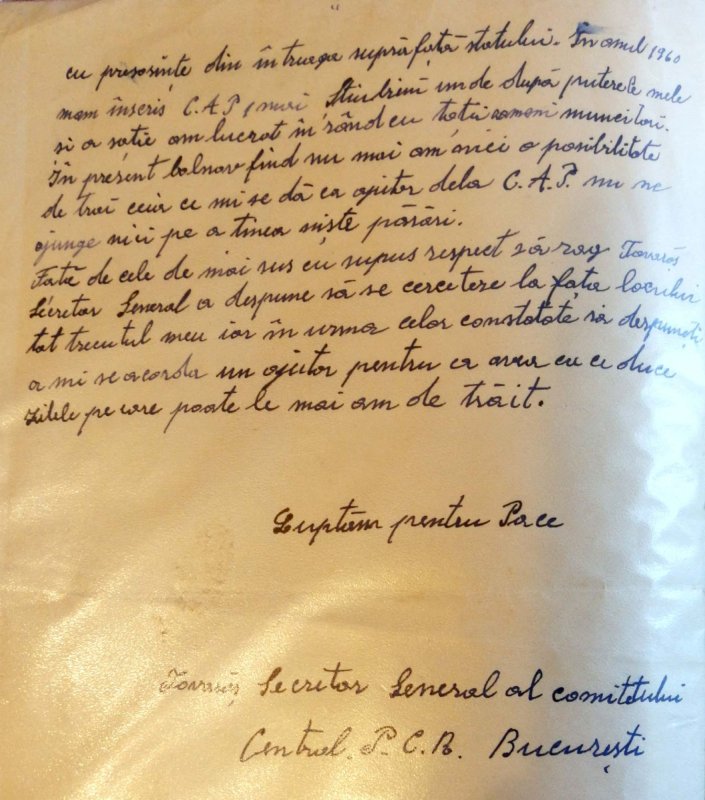 cu prisosințe din întreaga suprafață statului. În anul 1960
mam înscris C.A.P, mai Știubieni unde după puterele mele
si a soție am lucrat în rând cu toții oameni muncitori.
În prezent bolnav fiind nu mai am nici o posibilitate
de trai ceia ce mi se dă ca ajutor dela C.A.P. nu ne
ajunge nici pe a tinea niște păsări.
Fată de cele de mai sus cu supus respect să rog Tovarăș
Secretar General a despune să se cerceteze la fața locului
tot trecutul meu iar în urma celor constatate să despuneți
a mi se acorda un ajutor pentru ca avea cu ce duce
zilele pe care poate le mai am de trăit.
Luptăm pentru Pace
Tovarăș Secretar General al comitetului
Central. P.C.R. București